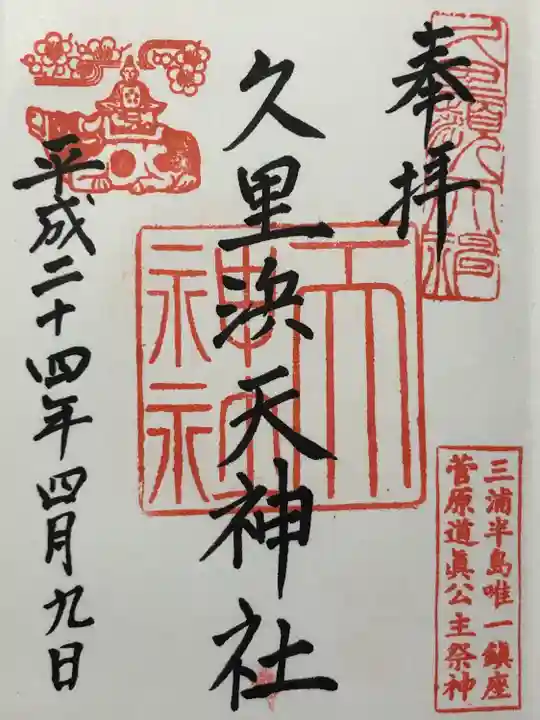 奉拝
久里浜天神社
平成二十四年四月九日
三浦半島唯一鎮座
菅原道眞公主祭神
天神社